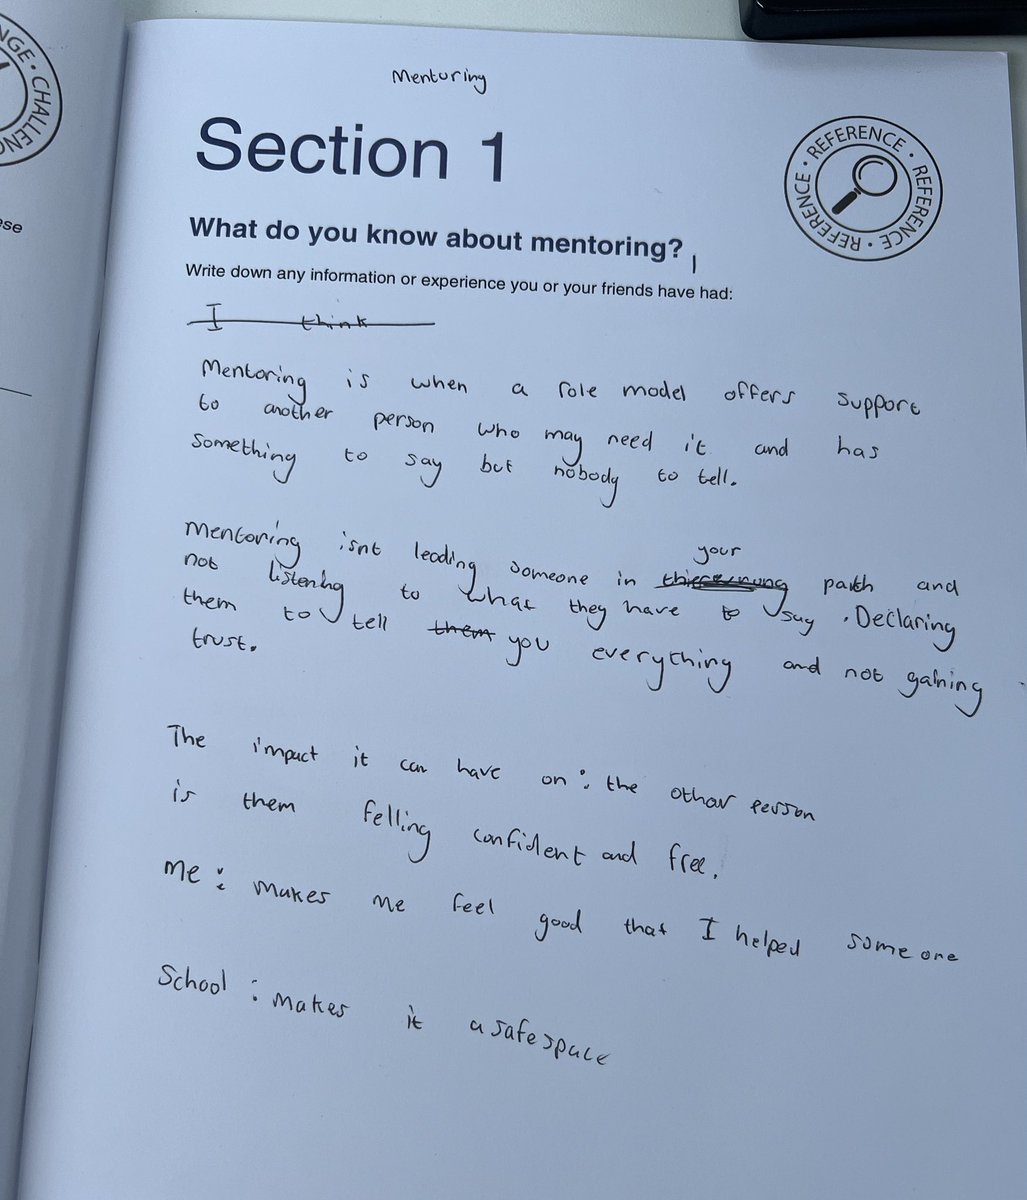 Mentoring
Section 1
REFERENCE • REFERENCE • REFERENCE • REFERENCE •
NGE • CHALLENG
ese
What do you know about mentoring?
Write down any information or experience you or your friends have had:
I think
Mentoring is when a role model offers support
to another person who may need it and has
something to say but nobody to tell.
your
Mentoring isnt leading someone in path and
not listening to what they have to say . Declaring
them to tell them you everything and not gaining
trust.
The impact it can have on : the other person
is them felling confident and free.
Me : makes me feel good that I helped someone
School : makes it a safe space